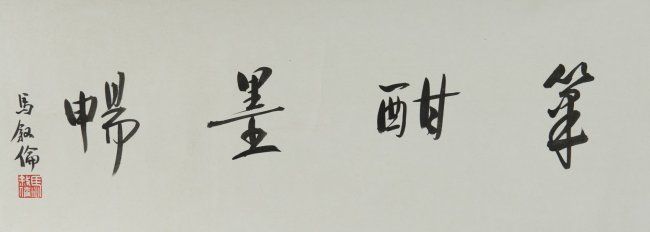 筆酣墨暢
馬敘倫